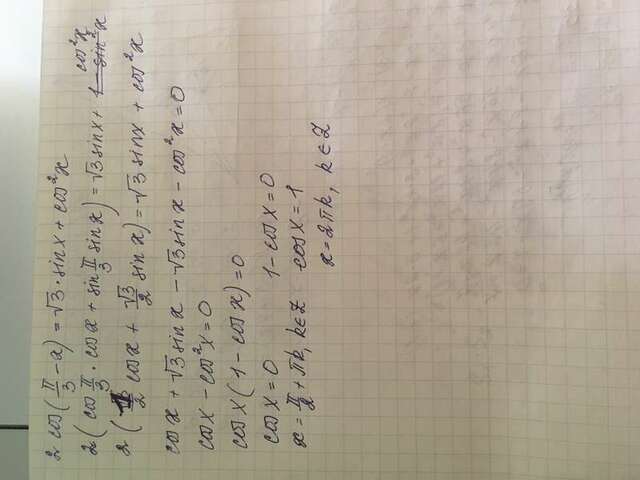 2 cos(π/3 - x) = √3 · sin x + cos²x
2(cos π/3 · cos x + sin π/3 sin x) = √3 sin x + cos²x
2(1/2 cos x + √3/2 sin x) = √3 sin x + cos²x
cos x + √3 sin x - √3 sin x - cos²x = 0
cos x - cos²x = 0
cos x (1 - cos x) = 0
cos x = 0 1 - cos x = 0
x = π/2 + πk, k∈Z cos x = 1
x = 2πk, k∈Z